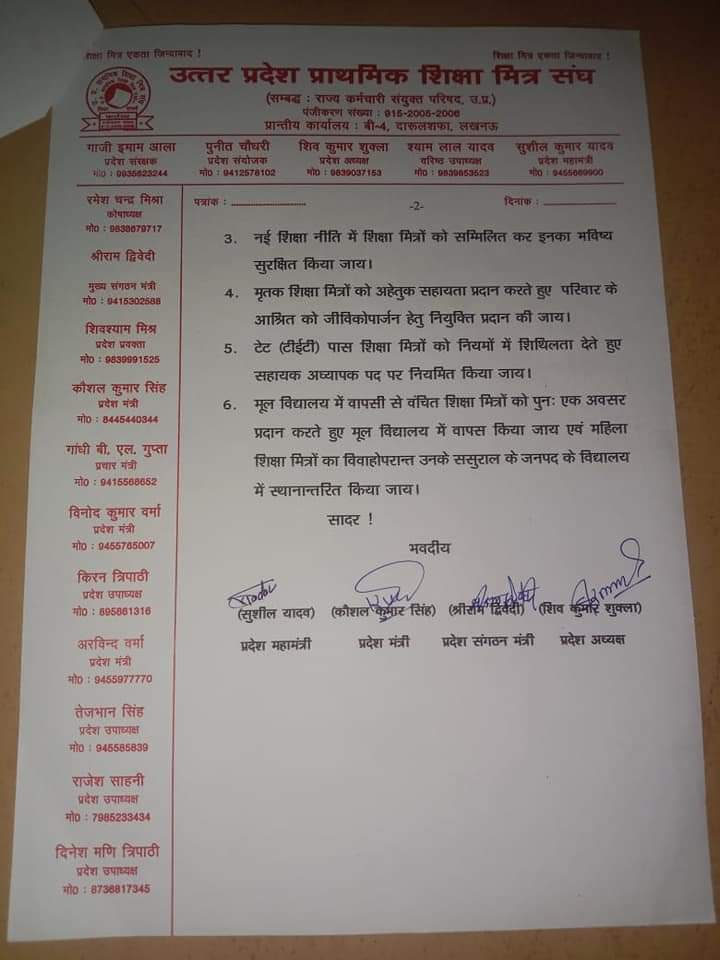 शिक्षा मित्र एकता जिन्दाबाद !
शिक्षा मित्र एकता जिन्दाबाद !
उत्तर प्रदेश प्राथमिक शिक्षा मित्र संघ
(सम्बद्ध : राज्य कर्मचारी संयुक्त परिषद, उ.प्र.)
पंजीकरण संख्या : 915-2005-2006
प्रान्तीय कार्यालय : बी-4, दारूलशफा, लखनऊ
गाजी इमाम आला
प्रदेश संरक्षक
मो0 : 9935623244
पुनीत चौधरी
प्रदेश संयोजक
मो0 : 9412578102
शिव कुमार शुक्ला
प्रदेश अध्यक्ष
मो0 : 9839037153
श्याम लाल यादव
वरिष्ठ उपाध्यक्ष
मो0 : 9839853523
सुशील कुमार यादव
प्रदेश महामंत्री
मो0 : 9455669900
रमेश चन्द्र मिश्रा
कोषाध्यक्ष
मो0 : 9838679717
श्रीराम द्विवेदी
मुख्य संगठन मंत्री
मो0 : 9415302588
शिवश्याम मिश्र
प्रदेश प्रवक्ता
मो0 : 9839991525
कौशल कुमार सिंह
प्रदेश मंत्री
मो0 : 8445440344
गांधी बी. एल. गुप्ता
प्रचार मंत्री
मो0 : 9415568652
विनोद कुमार वर्मा
प्रदेश मंत्री
मो0 : 9455765007
किरन त्रिपाठी
प्रदेश उपाध्यक्ष
मो0 : 895861316
अरविन्द वर्मा
प्रदेश मंत्री
मो0 : 9455977770
तेजभान सिंह
प्रदेश उपाध्यक्ष
मो0 : 945585839
राजेश साहनी
प्रदेश उपाध्यक्ष
मो0 : 7985233434
दिनेश मणि त्रिपाठी
प्रदेश उपाध्यक्ष
मो0 : 8736817345
पत्रांक : ........................
-2-
दिनांक : ........................
3. नई शिक्षा नीति में शिक्षा मित्रों को सम्मिलित कर इनका भविष्य
सुरक्षित किया जाय।
4. मृतक शिक्षा मित्रों को अहेतुक सहायता प्रदान करते हुए परिवार के
आश्रित को जीविकोपार्जन हेतु नियुक्ति प्रदान की जाय।
5. टेट (टीईटी) पास शिक्षा मित्रों को नियमों में शिथिलता देते हुए
सहायक अध्यापक पद पर नियमित किया जाय।
6. मूल विद्यालय में वापसी से वंचित शिक्षा मित्रों को पुनः एक अवसर
प्रदान करते हुए मूल विद्यालय में वापस किया जाय एवं महिला
शिक्षा मित्रों का विवाहोपरान्त उनके ससुराल के जनपद के विद्यालय
में स्थानान्तरित किया जाय।
सादर !
भवदीय
(सुशील यादव) (कौशल कुमार सिंह) (श्रीराम द्विवेदी) (शिव कुमार शुक्ला)
प्रदेश महामंत्री प्रदेश मंत्री प्रदेश संगठन मंत्री प्रदेश अध्यक्ष